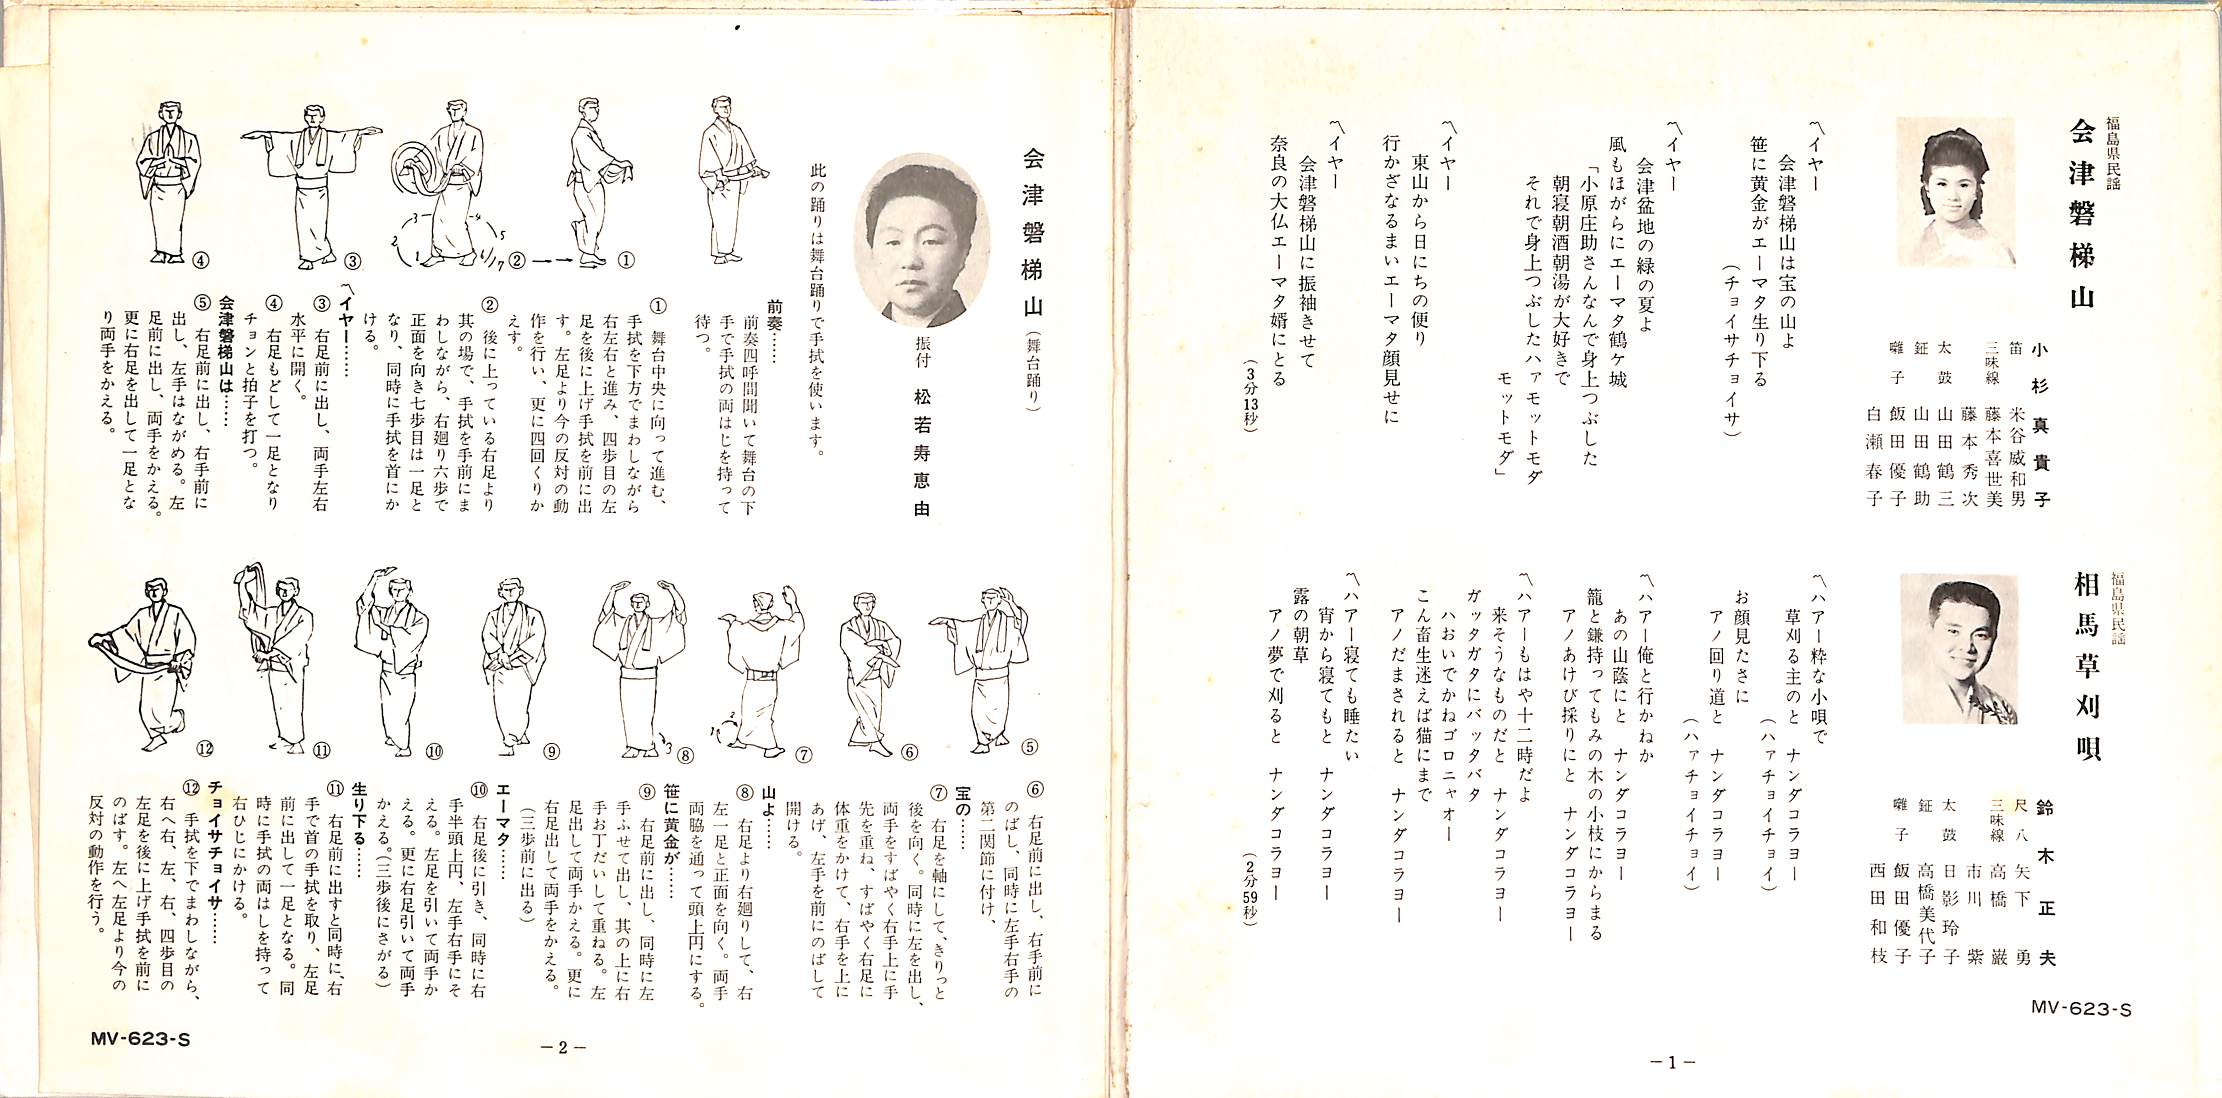 福島県民謡
会津磐梯山
小杉真貴子
笛 米谷威和男
三味線 藤本喜世美
藤本秀次
太鼓 山田鶴三
鉦 山田鶴助
囃子 飯田優子
白瀬春子
〽イヤー
会津磐梯山は宝の山よ
笹に黄金がエーマタ生り下る
(チョイサチョイサ)
〽イヤー
会津盆地の緑の夏よ
風もほがらにエーマタ鶴ヶ城
「小原庄助さんなんで身上つぶした
朝寝朝酒朝湯が大好きで
それで身上つぶしたハァモットモダ
モットモダ」
〽イヤー
東山から日にちの便り
行かざなるまいエーマタ顔見せに
〽イヤー
会津磐梯山に振袖きせて
奈良の大仏エーマタ婿にとる
(3分13秒)
福島県民謡
相馬草刈唄
鈴木正夫
尺八 矢下勇
三味線 高橋巌
市川紫
太鼓 日影玲子
鉦 高橋美代子
囃子 飯田優子
西田和枝
〽ハアー粋な小唄で
草刈る主のと ナンダコラヨー
(ハァチョイチョイ)
お顔見たさに
アノ回り道と ナンダコラヨー
(ハァチョイチョイ)
〽ハアー俺と行かねか
あの山蔭にと ナンダコラヨー
籠と鎌持ってもみの木の小枝にからまる
アノあけび採りにと ナンダコラヨー
〽ハアーもはや十二時だよ
来そうなものだと ナンダコラヨー
ガッタガタにバッタバタ
ハおいでかねゴロニャオー
こん畜生迷えば猫にまで
アノだまされると ナンダコラヨー
〽ハアー寝ても睡たい
宵から寝てもと ナンダコラヨー
露の朝草
アノ夢で刈ると ナンダコラヨー
(2分59秒)
MV-623-S
－1－
会津磐梯山(舞台踊り)
振付 松若寿恵由
此の踊りは舞台踊りで手拭を使います。
前奏……
前奏四呼間聞いて舞台の下
手で手拭の両はじを持って
待つ。
① 舞台中央に向って進む、
手拭を下方でまわしながら
右左右と進み、四歩目の左
足を後に上げ手拭を前に出
す。左足より今の反対の動
作を行い、更に四回くりか
えす。
② 後に上っている右足より
其の場で、手拭を手前にま
わしながら、右廻り六歩で
正面を向き七歩目は一足と
なり、同時に手拭を首にか
ける。
〽イヤー……
③ 右足前に出し、両手左右
水平に開く。
④ 右足もどして一足となり
チョンと拍子を打つ。
会津磐梯山は……
⑤ 右足前に出し、右手前に
出し、左手はながめる。左
足前に出し、両手をかえる。
更に右足を出して一足とな
り両手をかえる。
① ② ③ ④
1 2 3 4 5 6 7
⑥ 右足前に出し、右手前に
のばし、同時に左手右手の
第二関節に付け、
宝の……
⑦ 右足を軸にして、きりっと
後を向く。同時に左を出し、
両手をすばやく右手上に手
先を重ね、すばやく右足に
体重をかけて、右手を上に
あげ、左手を前にのばして
開ける。
山よ……
⑧ 右足より右廻りして、右
左一足と正面を向く。両手
両脇を通って頭上円にする。
笹に黄金が……
⑨ 右足前に出し、同時に左
手ふせて出し、其の上に右
手お丁だいして重ねる。左
足出して両手かえる。更に
右足出して両手をかえる。
(三歩前に出る)
エーマタ……
⑩ 右足後に引き、同時に右
手半頭上円、左手右手にそ
える。左足を引いて両手か
える。更に右足引いて両手
かえる。(三歩後にさがる)
生り下る……
⑪ 右足前に出すと同時に、右
手で首の手拭を取り、左足
前に出して一足となる。同
時に手拭の両はしを持って
右ひじにかける。
チョイサチョイサ……
⑫ 手拭を下でまわしながら、
右へ右、左、右、四歩目の
左足を後に上げ手拭を前に
のばす。左へ左足より今の
反対の動作を行う。
⑤ ⑥ ⑦ ⑧ ⑨ ⑩ ⑪ ⑫
MV-623-S
－2－